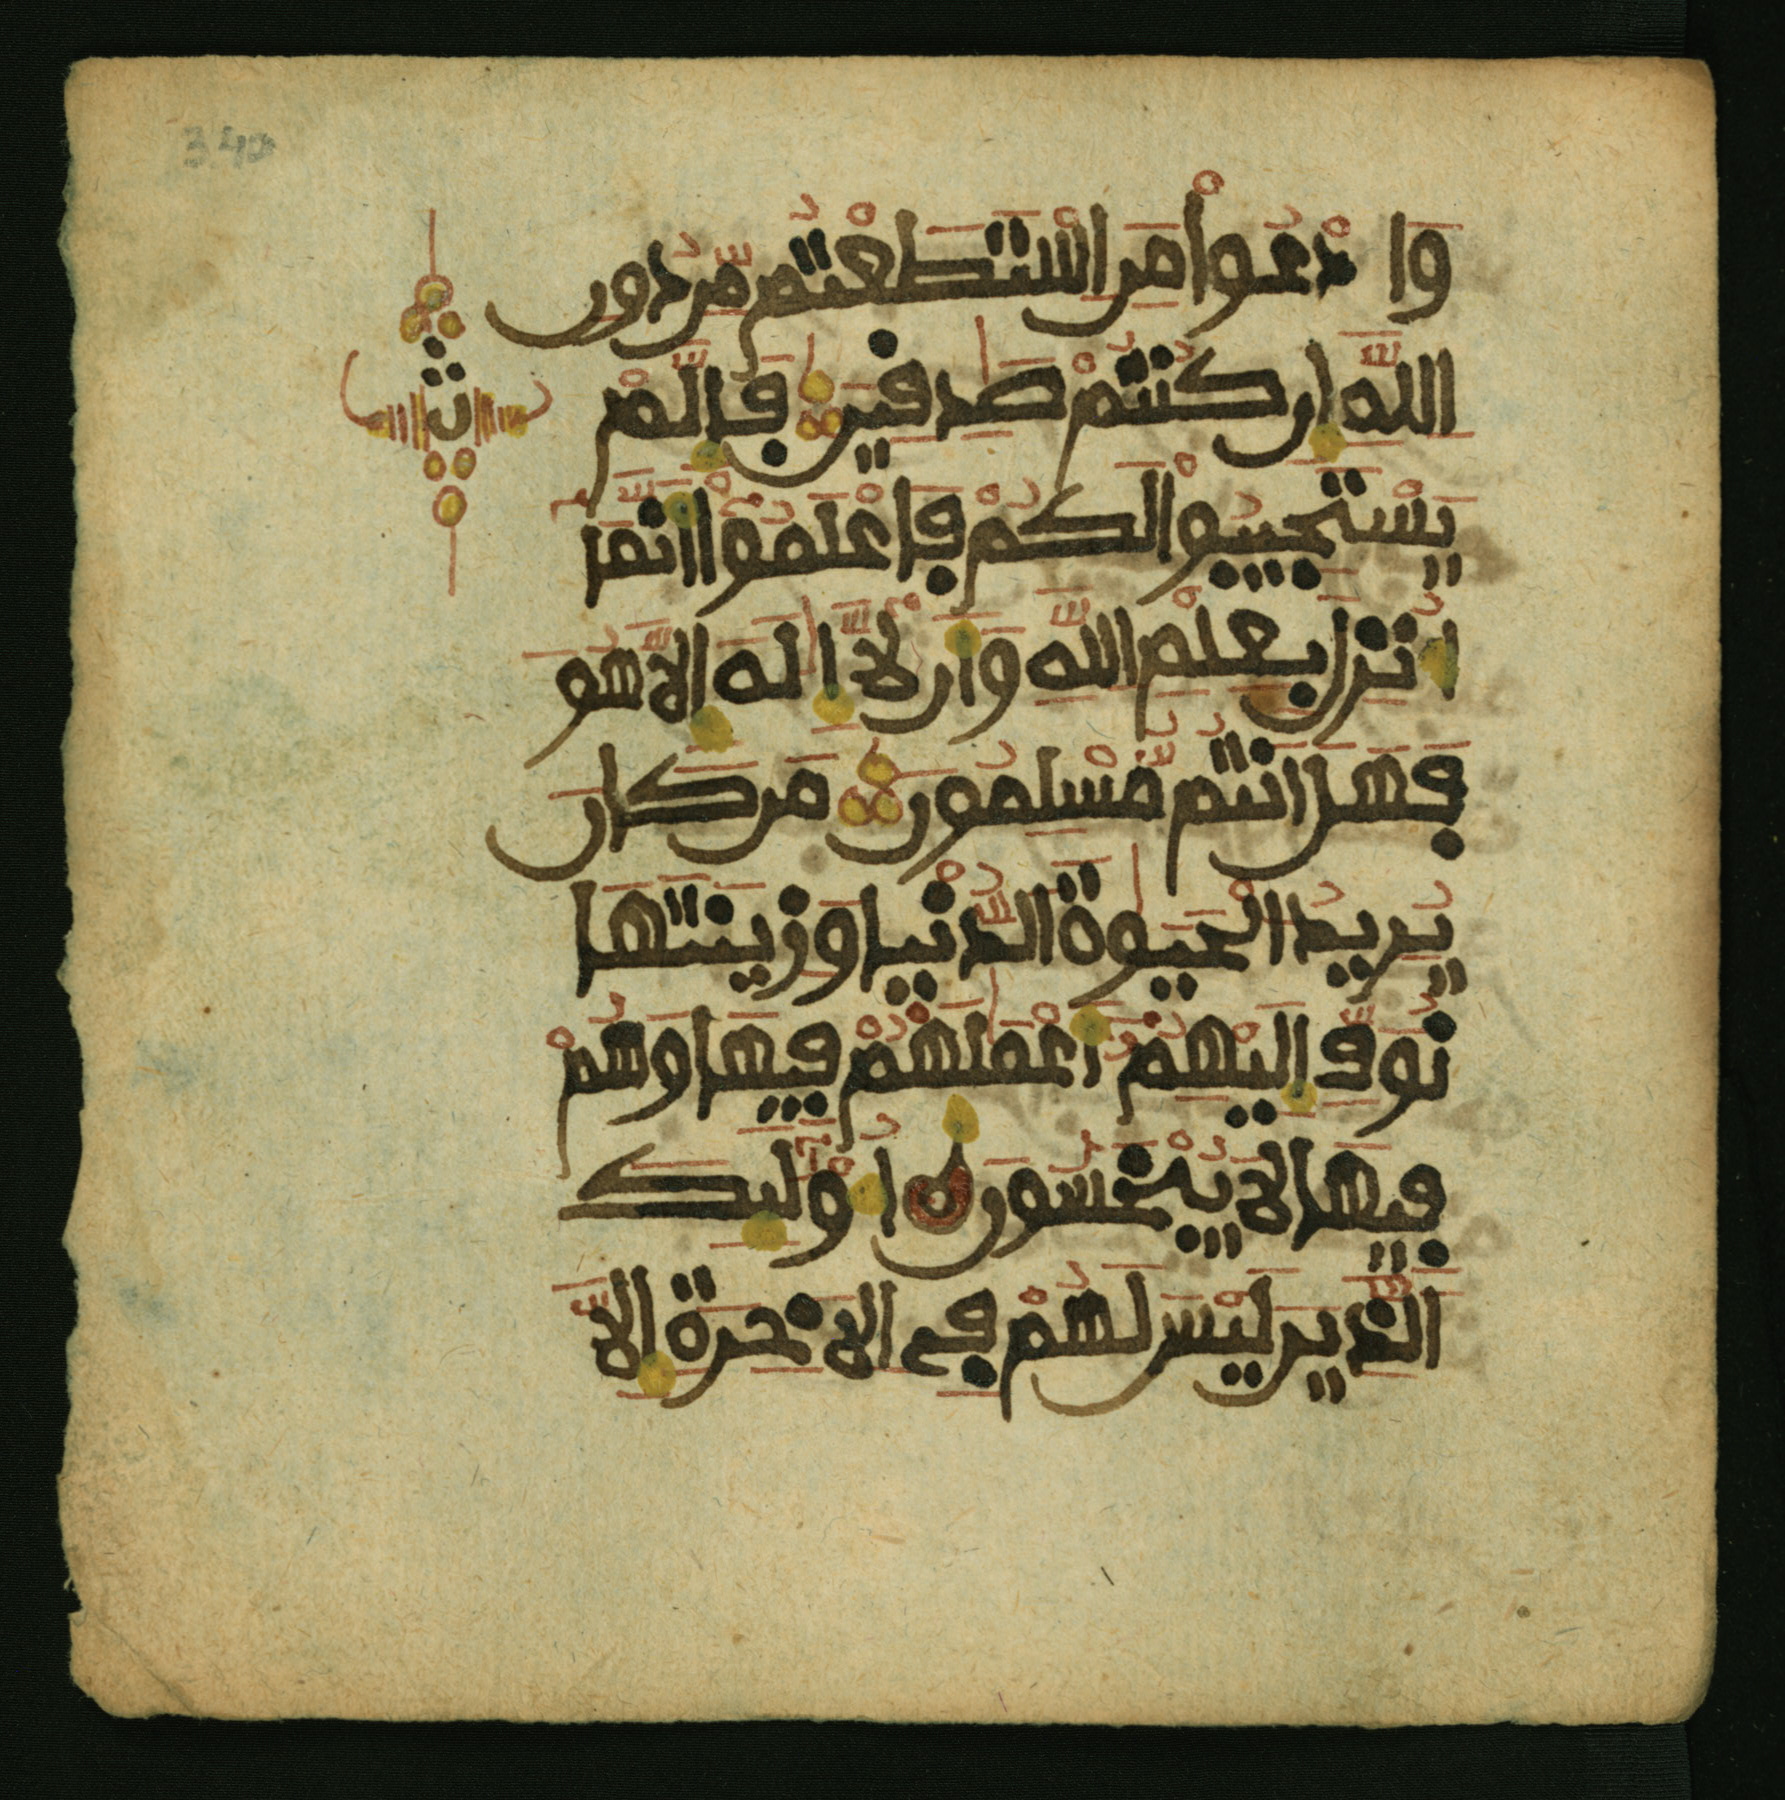 وَادْعُوا۟ مَنِ اِسْتَطَعْتُم مِّن دُونِ
اِللَّهِ إِن كُنتُمْ صَٰدِفِينَ فَإِلَّمْ
يَسْتَجِيبُوا۟ لَكُمْ فَاعْلَمُوٓا۟ أَنَّمَا
أُنزِلَ بِعِلْمِ اِللَّهِ وَأَن لَّآ إِلَٰهَ إِلَّا هُوَ
فَهَلَ اَنتُم مُّسْلِمُونَ مَن كَانَ
يُرِيدُ اُلْحَيَوٰةَ اَلدُّنْيَا وَزِينَتَهَا
نُوَفِّ إِلَيْهِمُۥٓ أَعْمَٰلَهُمْ فِيهَا وَهُمْ
فِيهَا لَا يُبْخَسُونَ أُو۟لَٰٓئِكَ
اَلذِينَ لَيْسَ لَهُمْ فِے اِلَاخِرَةِ إِلَّا
ث